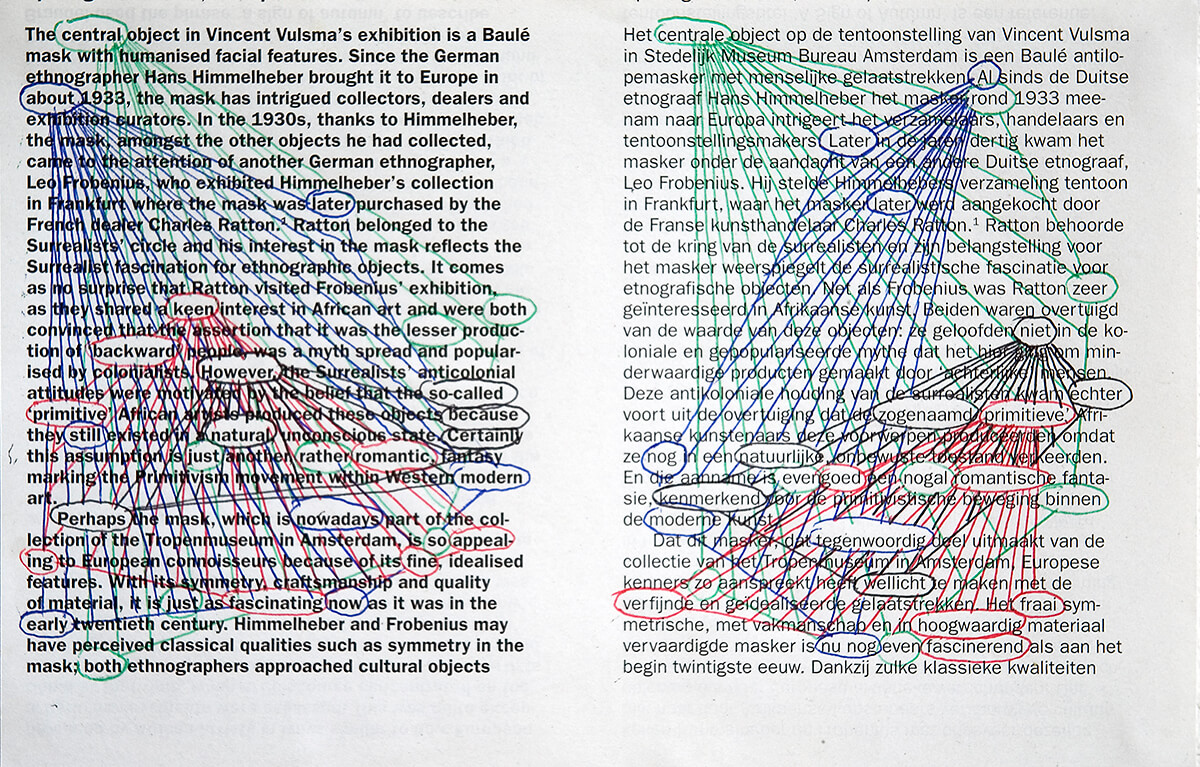 The central object in Vincent Vulsma's exhibition is a Baulé
mask with humanised facial features. Since the German
ethnographer Hans Himmelheber brought it to Europe in
about 1933, the mask has intrigued collectors, dealers and
exhibition curators. In the 1930s, thanks to Himmelheber,
the mask, amongst the other objects he had collected,
came to the attention of another German ethnographer,
Leo Frobenius, who exhibited Himmelheber's collection
in Frankfurt where the mask was later purchased by the
French dealer Charles Ratton.¹ Ratton belonged to the
Surrealists' circle and his interest in the mask reflects the
Surrealist fascination for ethnographic objects. It comes
as no surprise that Ratton visited Frobenius' exhibition,
as they shared a keen interest in African art and were both
convinced that the assertion that it was the lesser produc-
tion of 'backward' people, was a myth spread and popular-
ised by colonialists. However, the Surrealists' anticolonial
attitudes were motivated by the belief that the so-called
'primitive' African artists produced these objects because
they still existed in a natural, unconscious state. Certainly
this assumption is just another, rather romantic, fantasy
marking the Primitivism movement within Western modern
art.
Perhaps the mask, which is nowadays part of the col-
lection of the Tropenmuseum in Amsterdam, is so appeal-
ing to European connoisseurs because of its fine, idealised
features. With its symmetry, craftsmanship and quality
of material, it is just as fascinating now as it was in the
early twentieth century. Himmelheber and Frobenius may
have perceived classical qualities such as symmetry in the
mask; both ethnographers approached cultural objects
Het centrale object op de tentoonstelling van Vincent Vulsma
in Stedelijk Museum Bureau Amsterdam is een Baulé antilo-
pemasker met menselijke gelaatstrekken. Al sinds de Duitse
etnograaf Hans Himmelheber het masker rond 1933 mee-
nam naar Europa intrigeert het verzamelaars, handelaars en
tentoonstellingsmakers. Later in de jaren dertig kwam het
masker onder de aandacht van een andere Duitse etnograaf,
Leo Frobenius. Hij stelde Himmelhebers verzameling tentoon
in Frankfurt, waar het masker later werd aangekocht door
de Franse kunsthandelaar Charles Ratton.¹ Ratton behoorde
tot de kring van de surrealisten en zijn belangstelling voor
het masker weerspiegelt de surrealistische fascinatie voor
etnografische objecten. Net als Frobenius was Ratton zeer
geïnteresseerd in Afrikaanse kunst. Beiden waren overtuigd
van de waarde van deze objecten: ze geloofden niet in de ko-
loniale en gepopulariseerde mythe dat het hier ging om min-
derwaardige producten gemaakt door 'achterlijke' mensen.
Deze antikoloniale houding van de surrealisten kwam echter
voort uit de overtuiging dat de zogenaamd 'primitieve' Afri-
kaanse kunstenaars deze voorwerpen produceerden omdat
ze nog in een natuurlijke, onbewuste toestand verkeerden.
En die aanname is evengoed een nogal romantische fanta-
sie, kenmerkend voor de primitivistische beweging binnen
de moderne kunst.
Dat dit masker, dat tegenwoordig deel uitmaakt van de
collectie van het Tropenmuseum in Amsterdam, Europese
kenners zo aanspreekt heeft wellicht te maken met de
verfijnde en geïdealiseerde gelaatstrekken. Het fraai sym-
metrische, met vakmanschap en in hoogwaardig materiaal
vervaardigde masker is nu nog even fascinerend als aan het
begin twintigste eeuw. Dankzij zulke klassieke kwaliteiten